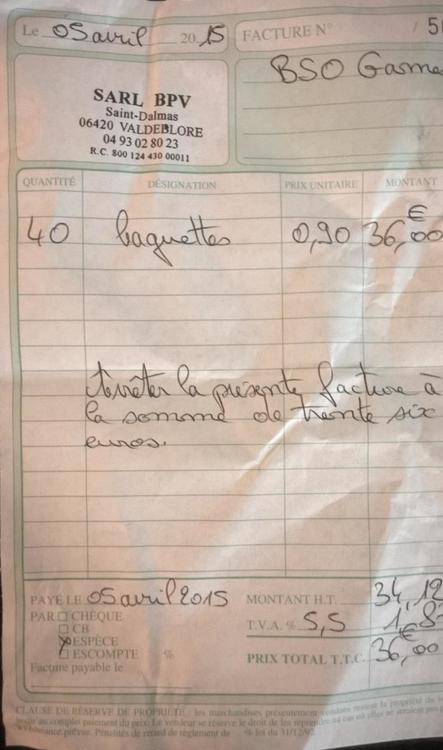 Le 05 avril 2015 FACTURE N° / 5
BSO Game
SARL BPV
Saint-Dalmas
06420 VALDEBLORE
04 93 02 80 23
R.C. 800 124 430 00011
QUANTITÉ DÉSIGNATION PRIX UNITAIRE MONTANT
40 baguettes 0,90 36,00 €
Arrêter la présente facture à
la somme de trente six
euros.
PAYÉ LE 05 avril 2015 MONTANT H.T. 34,12
PAR CHÈQUE
CB T.V.A. % 5,5 1,8
ESPÈCE
ESCOMPTE % PRIX TOTAL T.T.C. 36,00 €
Facture payable le
CLAUSE DE RÉSERVE DE PROPRIÉTÉ : les marchandises, présentement vendues restent la propriété du
complet paiement du prix. Le vendeur se réserve le droit de les reprendre
prévue. Pénalités de retard de règlement de % loi du 31/12/92